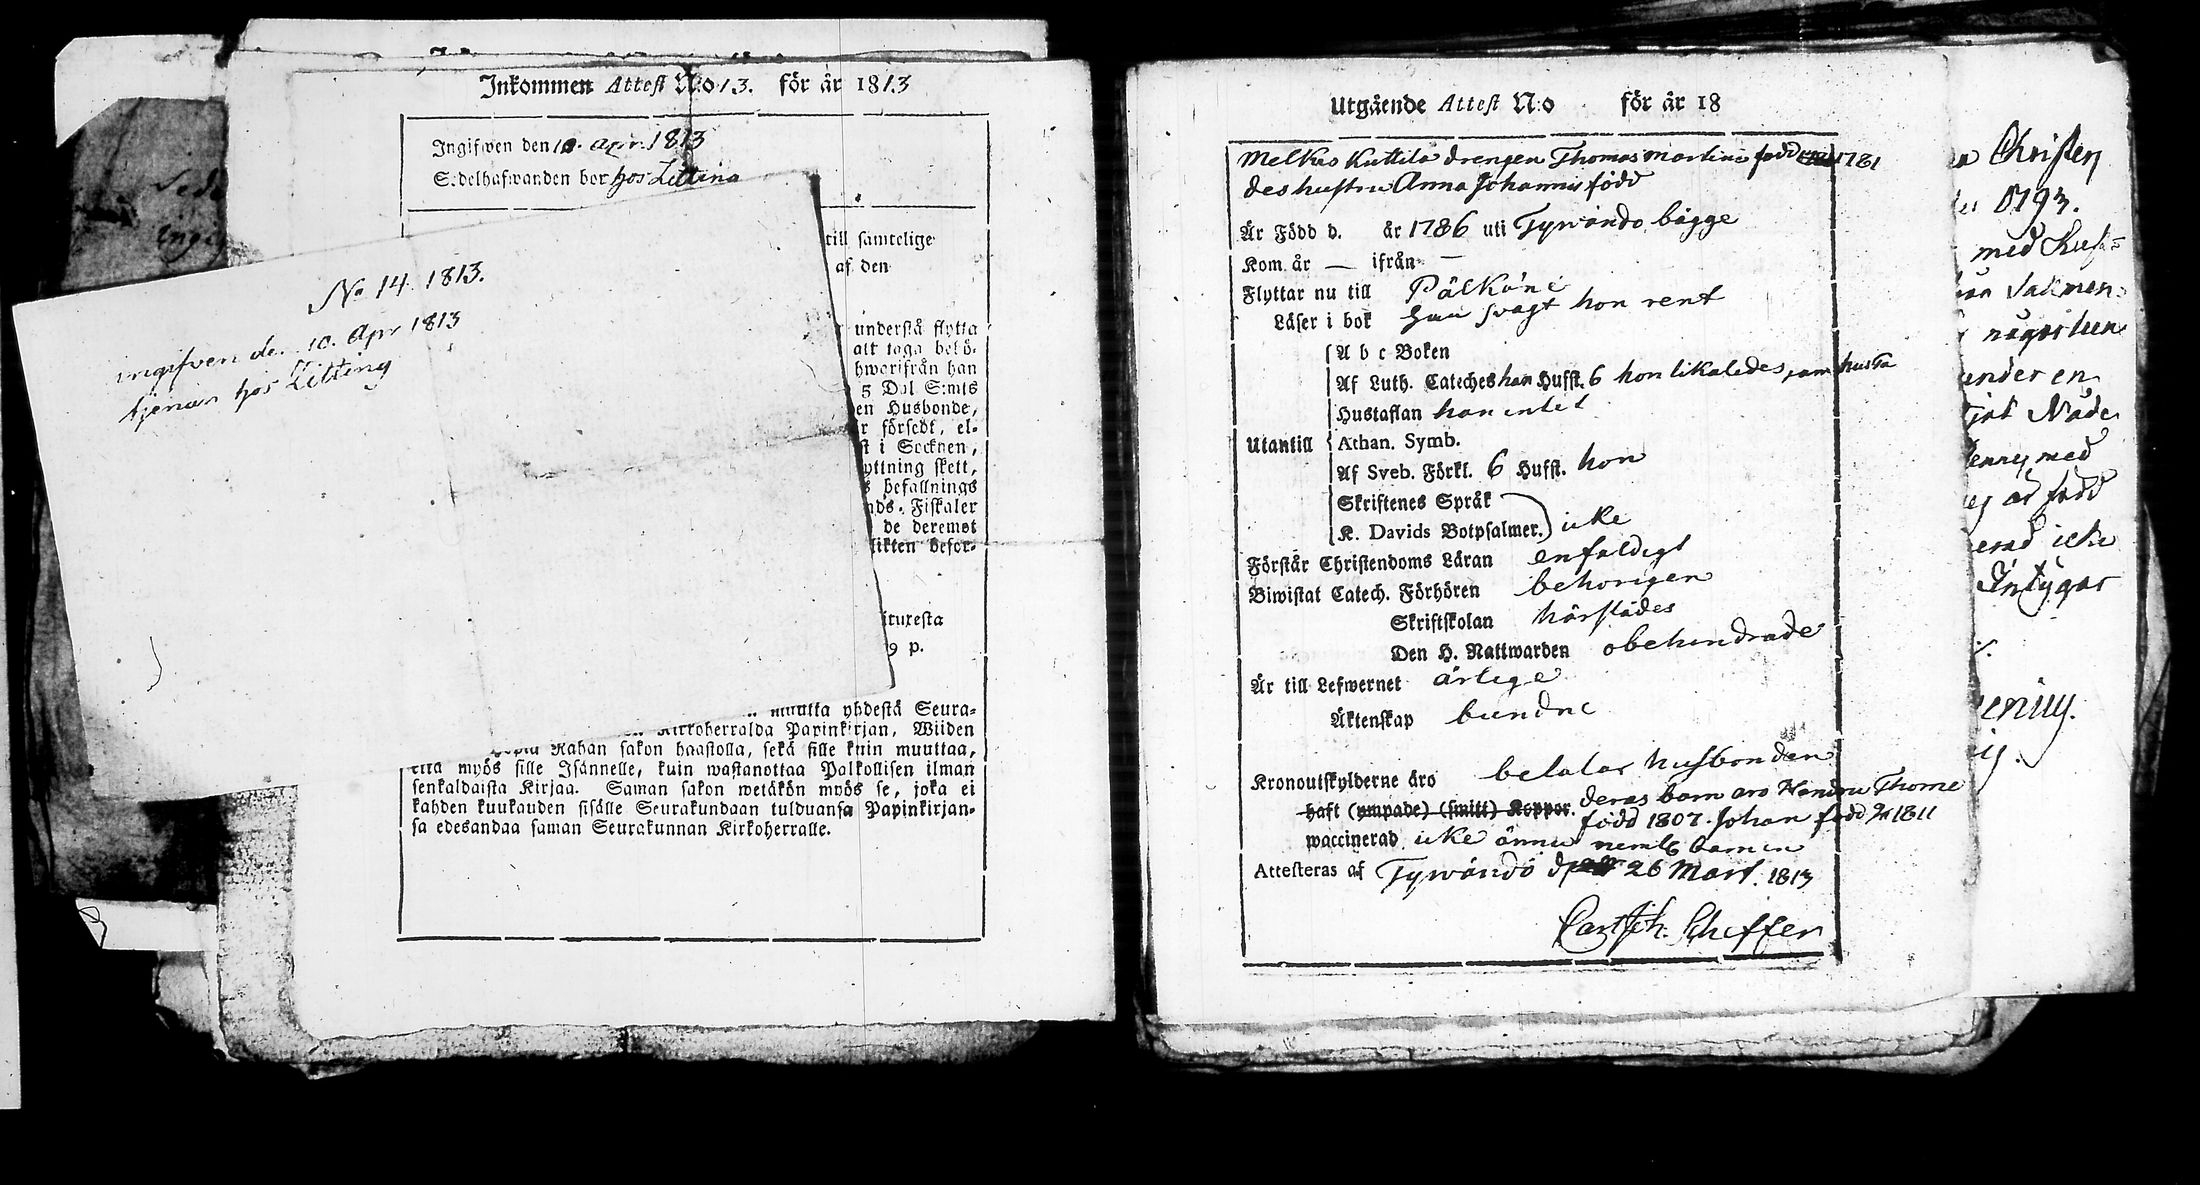 Inkommen Attest N:o 13. för år 1813
Ingifwen den 10. Apr. 1813
Sedelhafwanden bor hos Litting
till samtelige
af den
understå flytta
att taga behö-
hwarifrån han
5 Dal S:mts
en Husbonde,
r försedt, el-
st i Socknen,
yttning skett,
s befallnings
nds-Fiskaler
de deremot
likten befor-
turesta
9 p.
N:o 14. 1813.
ingifven de. 10. Apr 1813
tjenar hos Litting
muutta yhdestä Seura-
Kirkoherralda Papinkirjan, Wiiden
Rahan sakon haastolla, sekä sille kuin muuttaa,
että myös sille Isännelle, kuin wastanottaa Palkollisen ilman
senkaldaista Kirjaa. Saman sakon wetäkön myös se, joka ei
kahden kuukauden sisälle Seurakundaan tulduansa Papinkirjan-
sa edesandaa saman Seurakunnan Kirkoherralle.
Utgående Attest N:o för år 18
Melkus Kuttila drengen Thomas Martini född 1781
des hustru Anna Johannis född
Är Född d. år 1786 uti Tyrwändö bägge
Kom år — ifrån —
Flyttar nu till Pälkäne
Läser i bok han svagt hon rent
A b c Boken
Af Luth. Cateches han Hufst. 6 hon likaledes, sam husta
Hustaflan han intet
Utantill Athan. Symb.
Af Sveb. Förkl. 6 Hufst. hon
Skriftenes Språk
K. Davids Botpsalmer. icke
Förstår Christendoms Läran enfaldigt
Biwistat Catech. Förhören behörigen
Skriftskolan härstädes
Den H. Nattwarden obehindrade
Är till Lefwernet ärlige
Äktenskap bundne
Kronoutskylderne äro betalar husbonden
haft (ympade) (smitt) Koppor. deras barn äro Hendric Thome
född 1807. Johan född 1811
waccinerad icke ännu neml. barnen
Attesteras af Tyrwändö d 26 Mart. 1813
Carl Joh. Scheffer
Christen
1793.
med Hus-
någorlun
under en
Nåde
med
är född
erad icke
Intygar